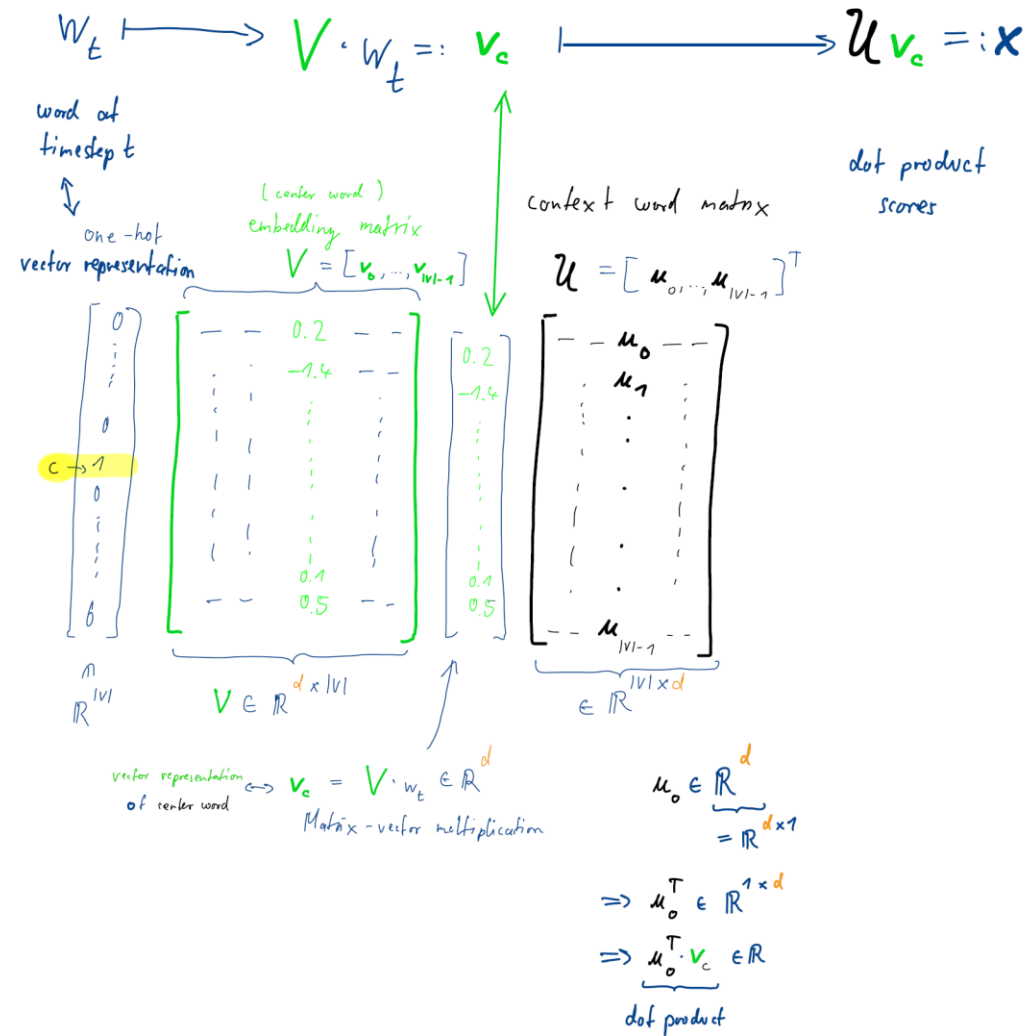 w_t ↦ V · w_t =: v_c ↦ U v_c =: x
word at
timestep t
↕
one-hot
vector representation
(center word)
embedding matrix
V = [v_0, ..., v_|V|-1]
context word matrix
U = [u_0, ..., u_|V|-1]^T
dot product
scores
0
0
c → 1
0
0
-- 0.2 --
-1.4 --
0.1
-- 0.5 --
0.2
-1.4
0.1
0.5
-- u_0 --
u_1
-- u_|V|-1 --
∩
ℝ^|V|
V ∈ ℝ^d×|V|
∈ ℝ^|V|×d
vector representation
of center word
↔ v_c = V · w_t ∈ ℝ^d
Matrix-vector multiplication
u_0 ∈ ℝ^d
= ℝ^d×1
⇒ u_0^T ∈ ℝ^1×d
⇒ u_0^T · v_c ∈ ℝ
dot product